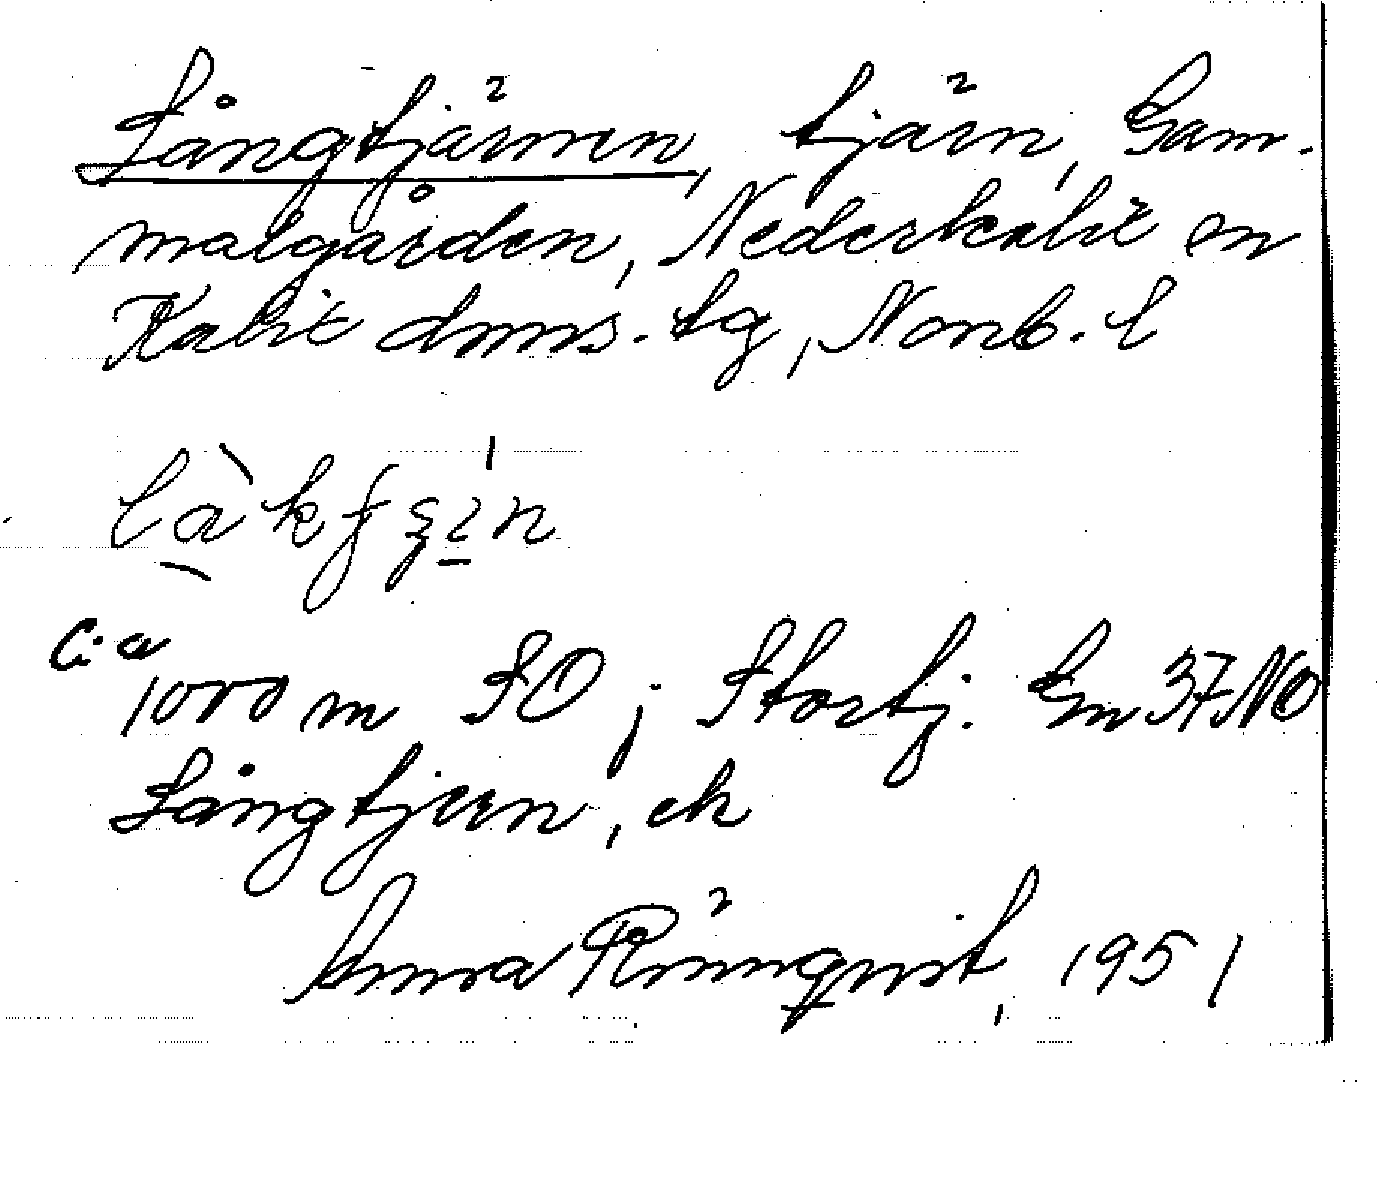 Långtjärnen, tjärn, Gam-
malgården, Nederkalix sn
Kalix doms. tg, Norrb. l
Ca
1000 m SO; Stortj. Gm 37 NO
Långtjern, ek
Anna Rönnqvist, 1951